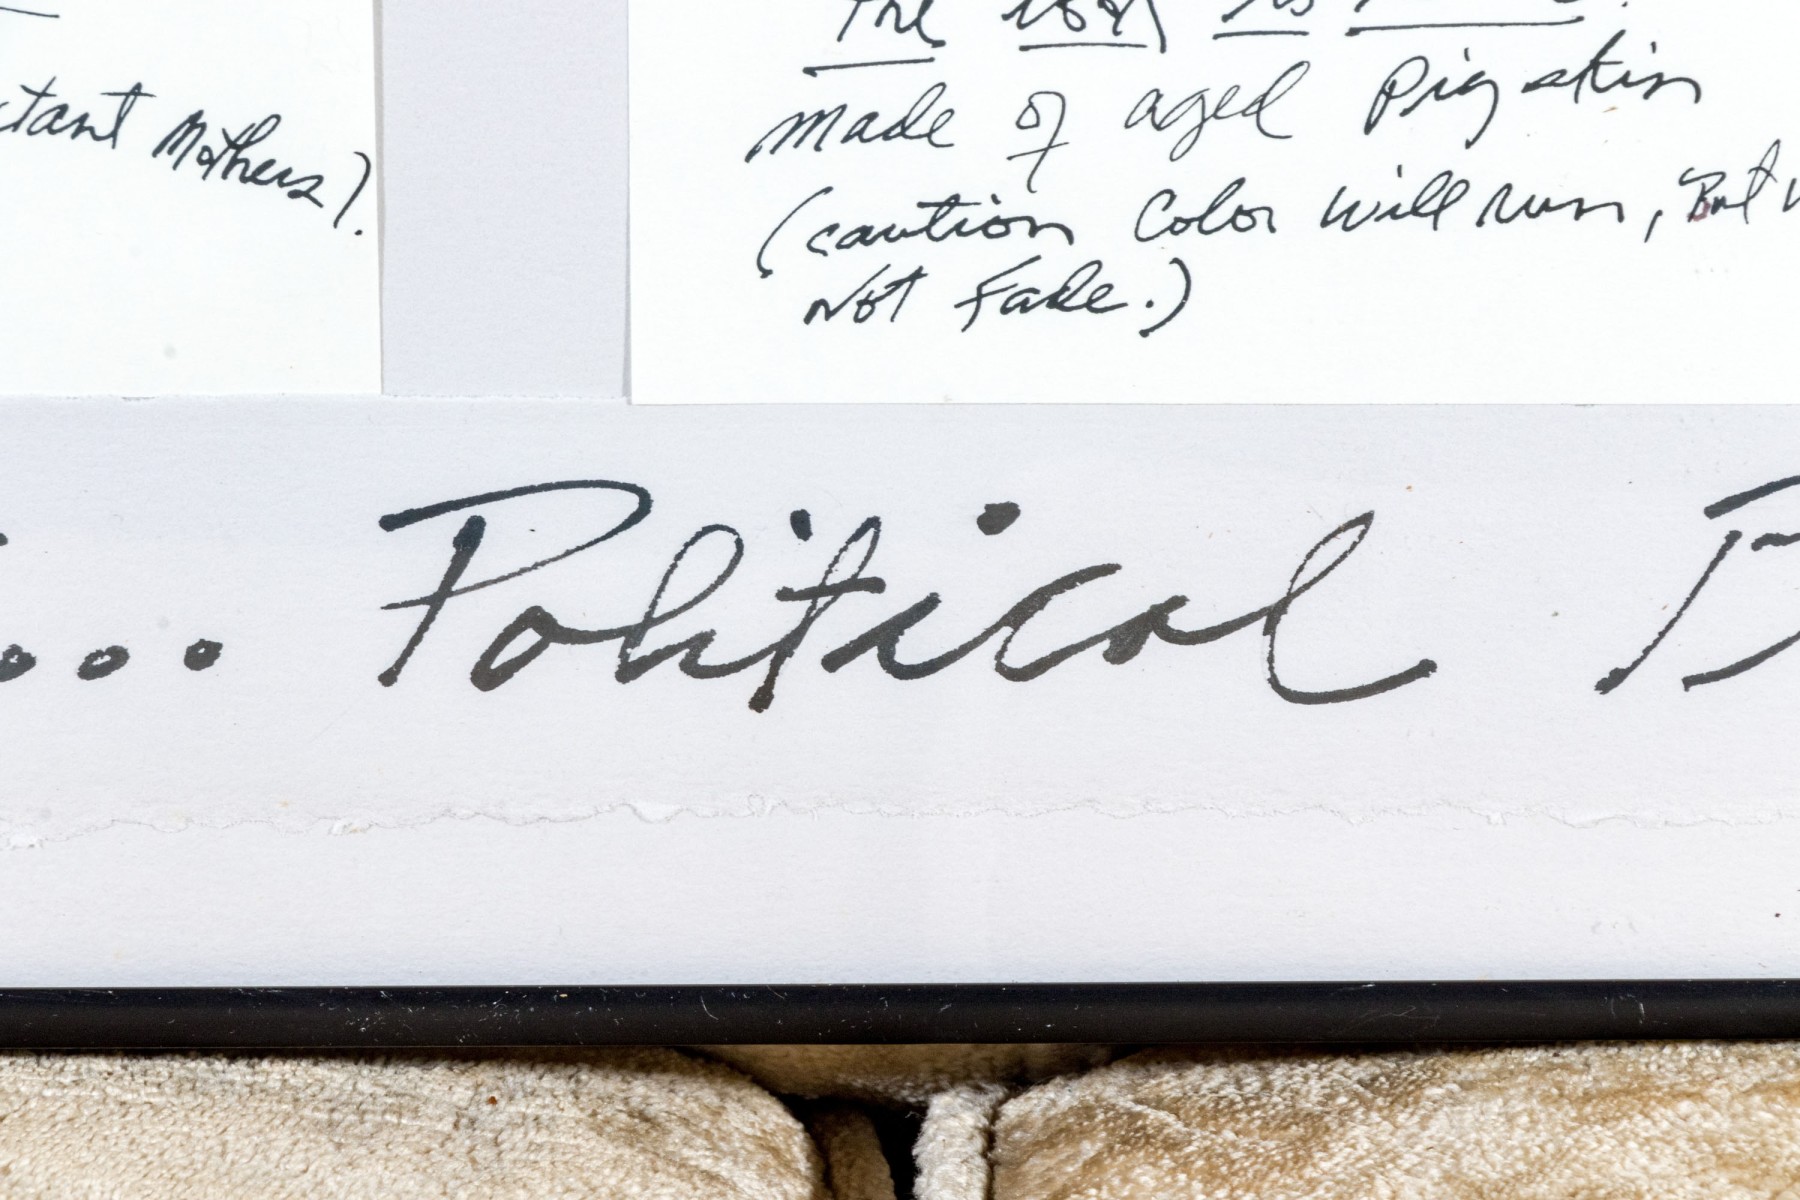 tant Mothers).
The
made of aged Pig skin
(caution Color will run, But
Not Fade.)
... Political